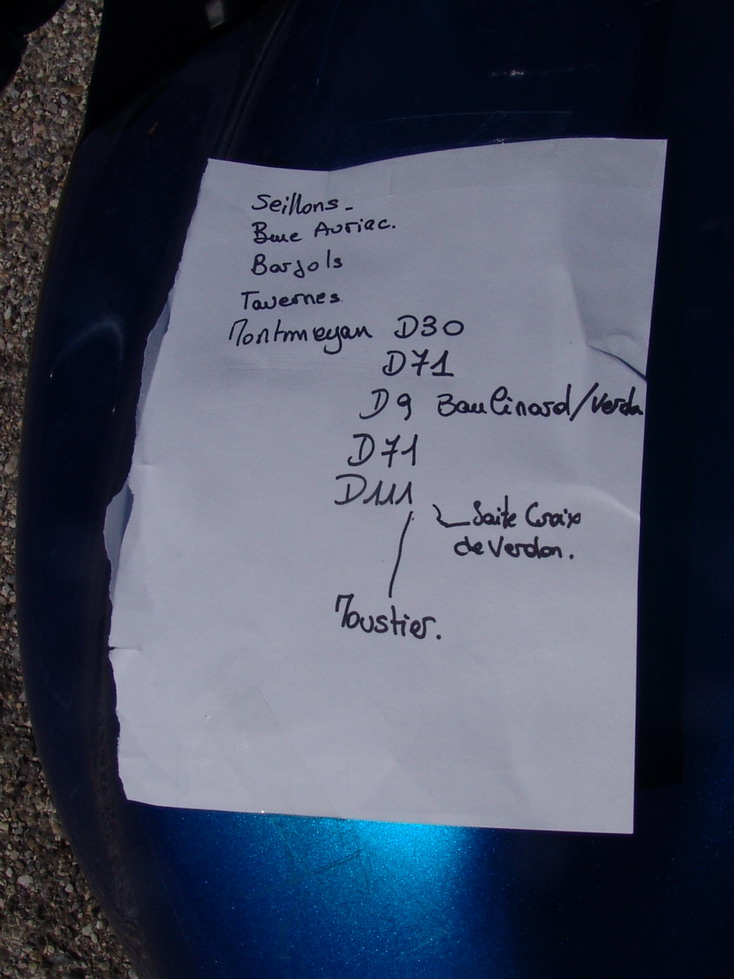 Seillons -
Brue Auriac.
Barjols
Tavernes
Montmeyan D30
D71
D9 Baulinard/Verdo
D71
D111
Saite Croix
de Verdon.
Moustier.